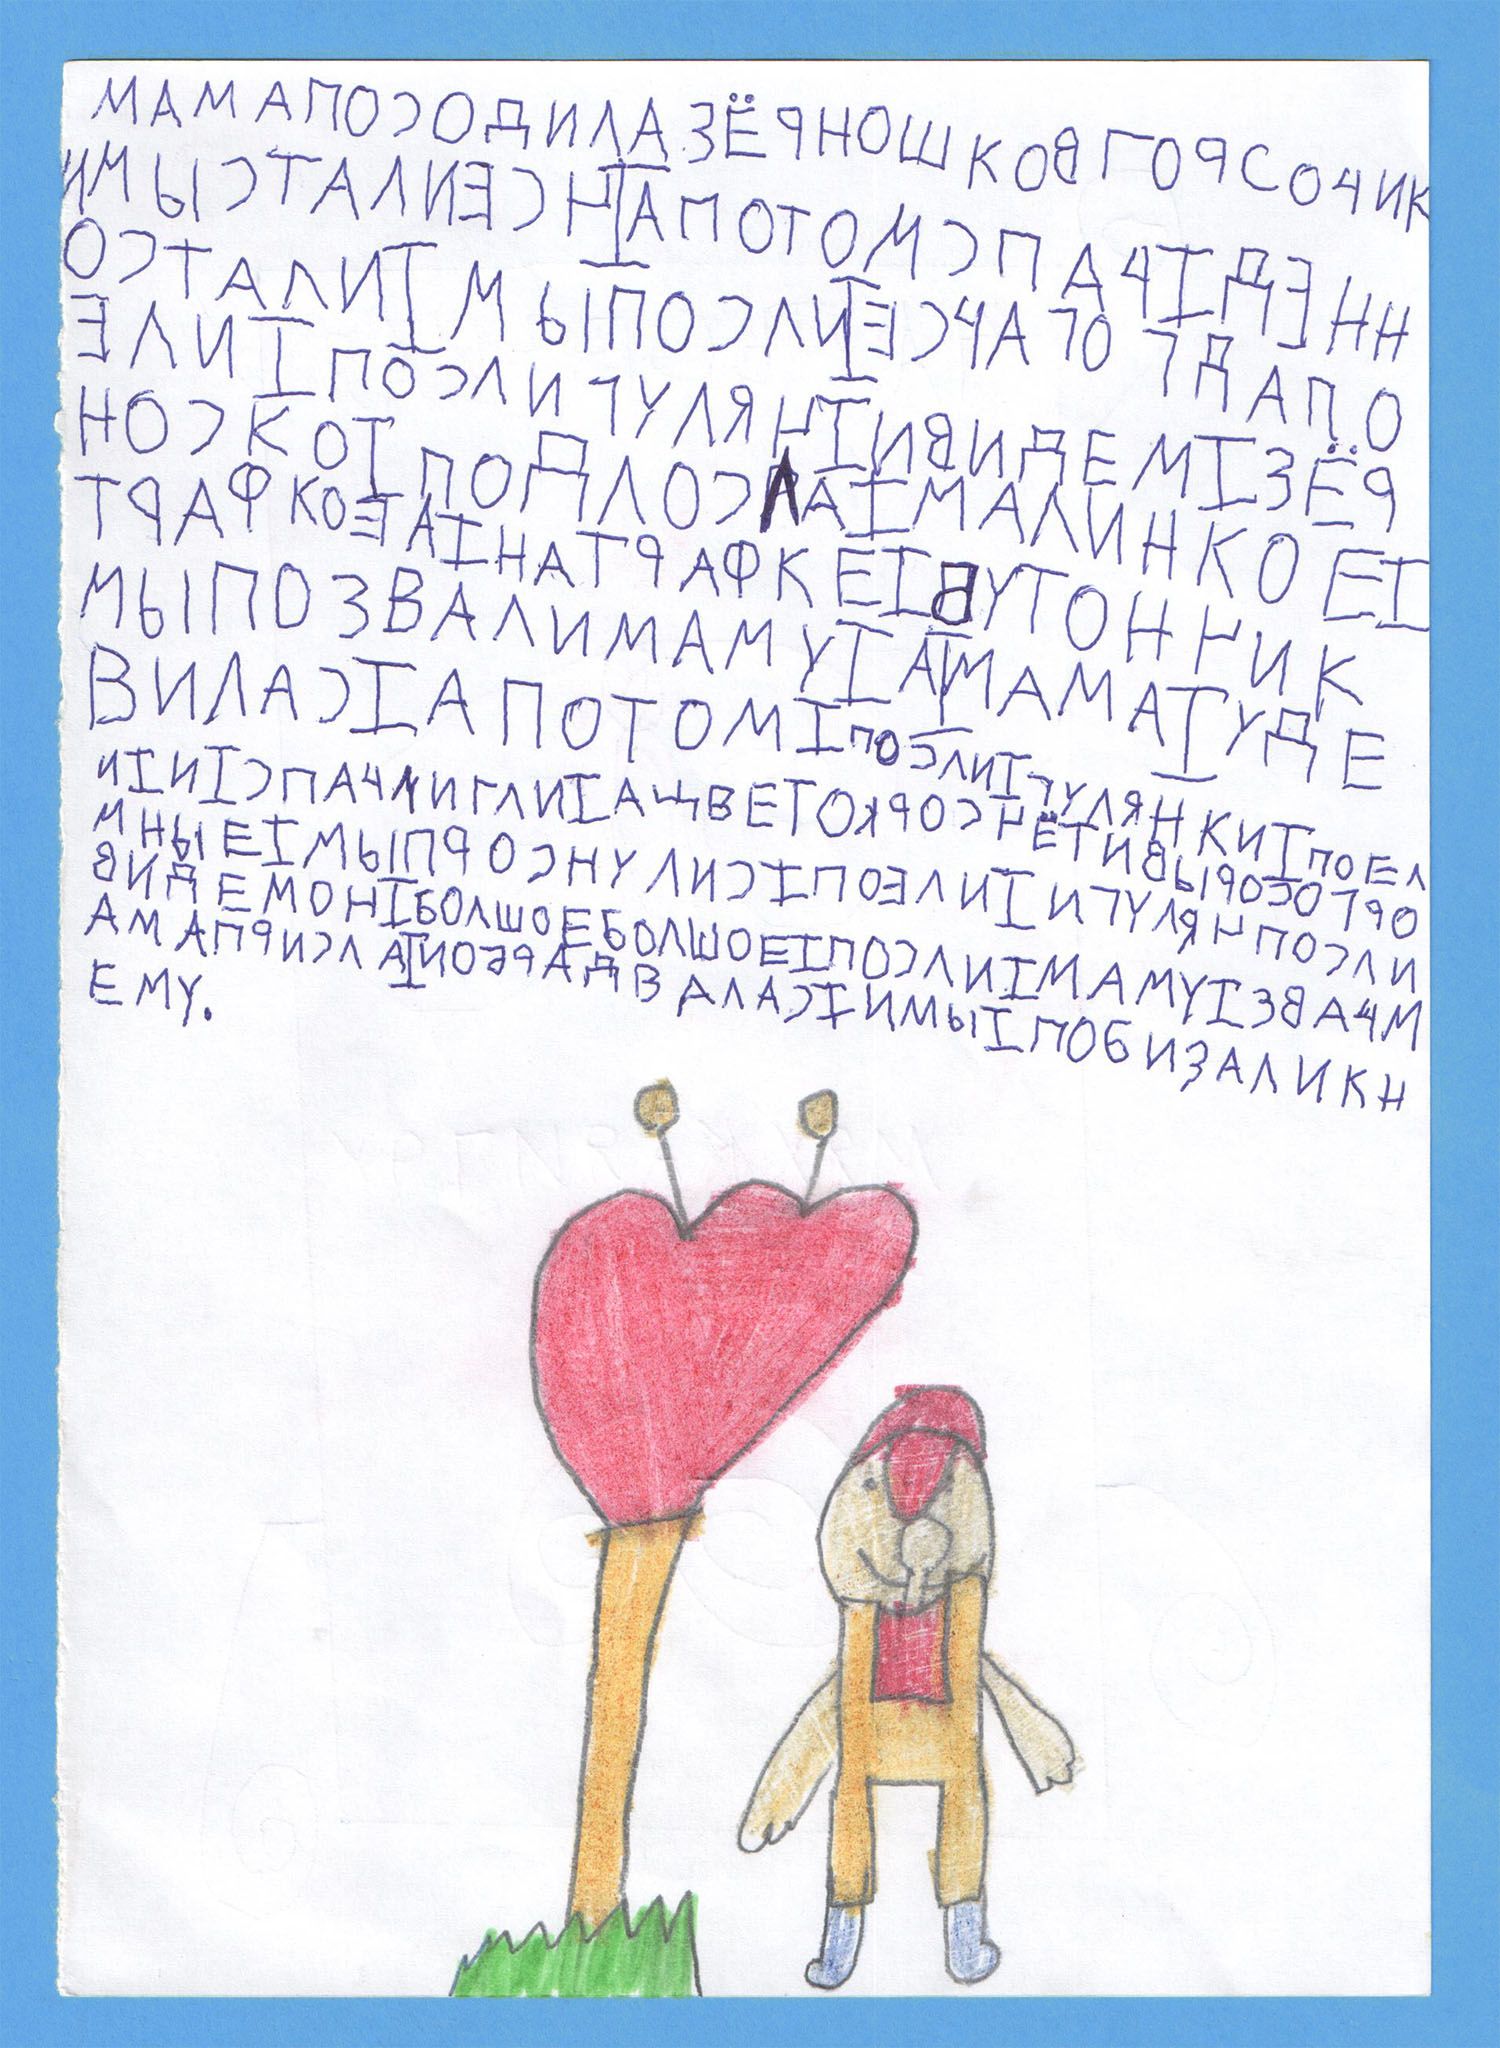 МАМАПОСОДИЛАЗЁРНОШКОВГОРСОЧИК
ИМЫСТАЛИЕСНIАПОТОМСПАЧIДЕНН
ОСТАЛИIМЫПОСЛИIЕСЧАГОГДАПО
ЕЛИIПОСЛИГУЛЯНIИВИДЕМIЗЁР
НОСКОIПОДЛОСЛАIМАЛИНКОЕI
ТРАФКОЕАIНАТРАФКЕIВУТОННИК
МЫПОЗВАЛИМАМУIАIМАМАIУДЕ
ВИЛАСIАПОТОМIПОСЛИIГУЛЯНКИIПОЕЛ
ИIИIСПАЧЛИГЛИIАЦВЕТОКРОСНЁТИВЫРОСОГРО
МНЫЕIМЫПРОСНУЛИСIПОЕЛИIИГУЛЯНПОСЛИ
ВИДЕМОНIБОЛШОЕБОЛШОЕIПОСЛИIМАМУIЗВАЧМ
АМАПРИСЛАIИОБРАДВАЛАСIИМЫIПОБИЗАЛИКН
ЕМУ.